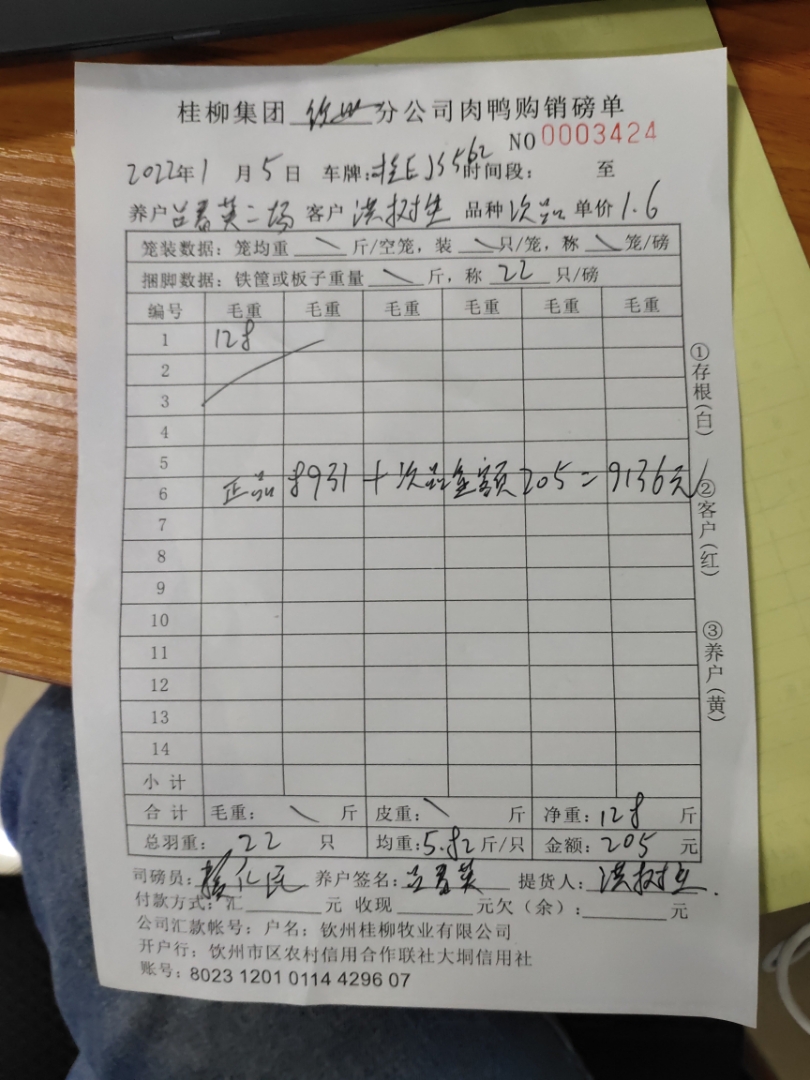 桂柳集团 钦州 分公司肉鸭购销磅单
NO 0003424
2022年1月5日 车牌:桂EJS562 时间段: 至
养户 吕春英二场 客户 洪树生 品种 次品 单价 1.6
笼装数据:笼均重 \ 斤/空笼,装 \ 只/笼,称 \ 笼/磅
捆脚数据:铁筐或板子重量 \ 斤,称 22 只/磅
编号 毛重 毛重 毛重 毛重 毛重 毛重
1 128
2
3
4
5
6 正品 8931 + 次品金额 205 = 9136元
7
8
9
10
11
12
13
14
小计
合计 毛重: \ 斤 皮重: \ 斤 净重:128 斤
总羽重: 22 只 均重:5.82 斤/只 金额:205 元
司磅员: 养户签名:吕春英 提货人:洪树生
付款方式:汇 元 收现 元欠(余): 元
公司汇款帐号:户名:钦州桂柳牧业有限公司
开户行:钦州市区农村信用合作联社大垌信用社
账号:8023 1201 0114 4296 07
①存根(白)
②客户(红)
③养户(黄)